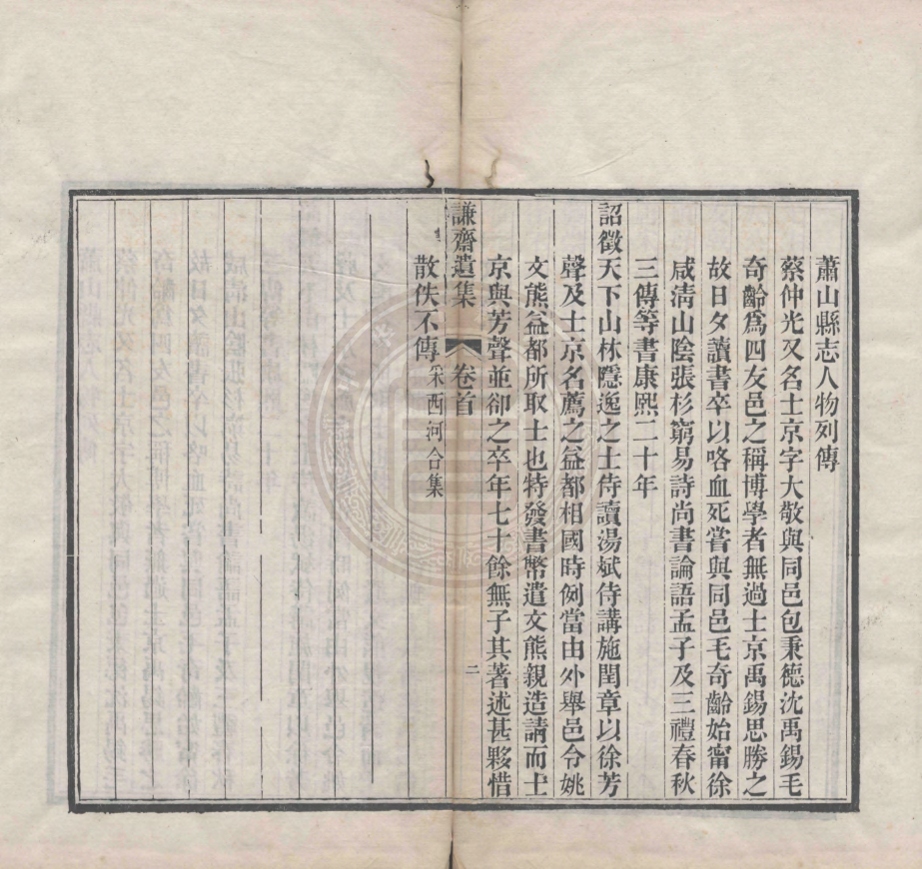 蕭山縣志人物列傳
蔡仲光又名士京字大敬與同邑包秉德沈禹錫毛
奇齡爲四友邑之稱博學者無過士京禹錫思勝之
故日夕讀書卒以咯血死嘗與同邑毛奇齡始甯徐
咸淸山陰張杉窮易詩尚書論語孟子及三禮春秋
三傳等書康熙二十年
詔徵天下山林隱逸之士侍讀湯斌侍講施閏章以徐芳
聲及士京名薦之益都相國時例當由外舉邑令姚
文熊益都所取士也特發書幣遣文熊親造請而士
京與芳聲並卻之卒年七十餘無子其著述甚夥惜
散佚不傳采西河合集
謙齋遺集 卷首 二